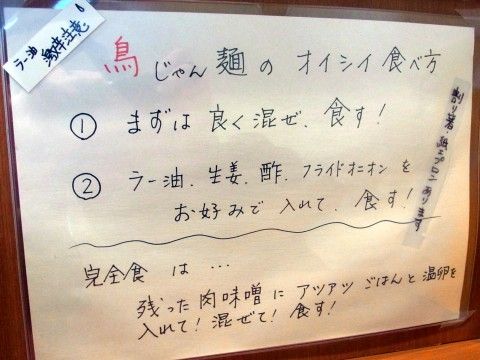 ラー油
爆発注意
鳥じゃん麺の オイシイ食べ方
① まずは良く混ぜ、食す！
② ラー油、生姜、酢、フライドオニオンを
お好みで入れて、食す！
割り箸 紙エプロン あります
完全食 は …
残った肉味噌に アツアツ ごはんと温卵を
入れて！混ぜて！食す！